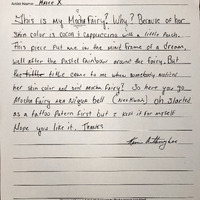 Artist Name: Alice X
This is my Mocha Fairy? Why? Because of her
Skin color is cocoa & cappuccino with a little Punch.
This piece Put me in the mind frame of a dream,
well after the Pastel rainbow around the fairy. But
the title came to me when somebody noticed
her skin color and said mocha Fairy? So here you go
Mocha Fairy AKA Nigua bell (Nee Kwah) oh started
as a tattoo Patern first but I kept it for myself
Hope you like it. Thanks